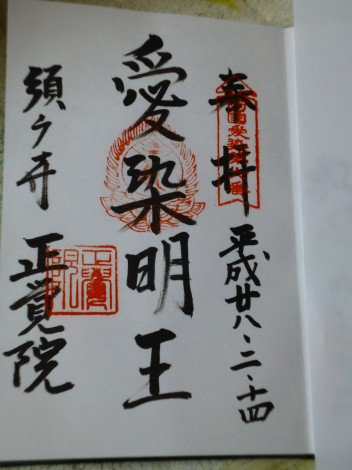 奉拝 平成廿八・二・十四
愛染明王
須ケ寺 正覚院